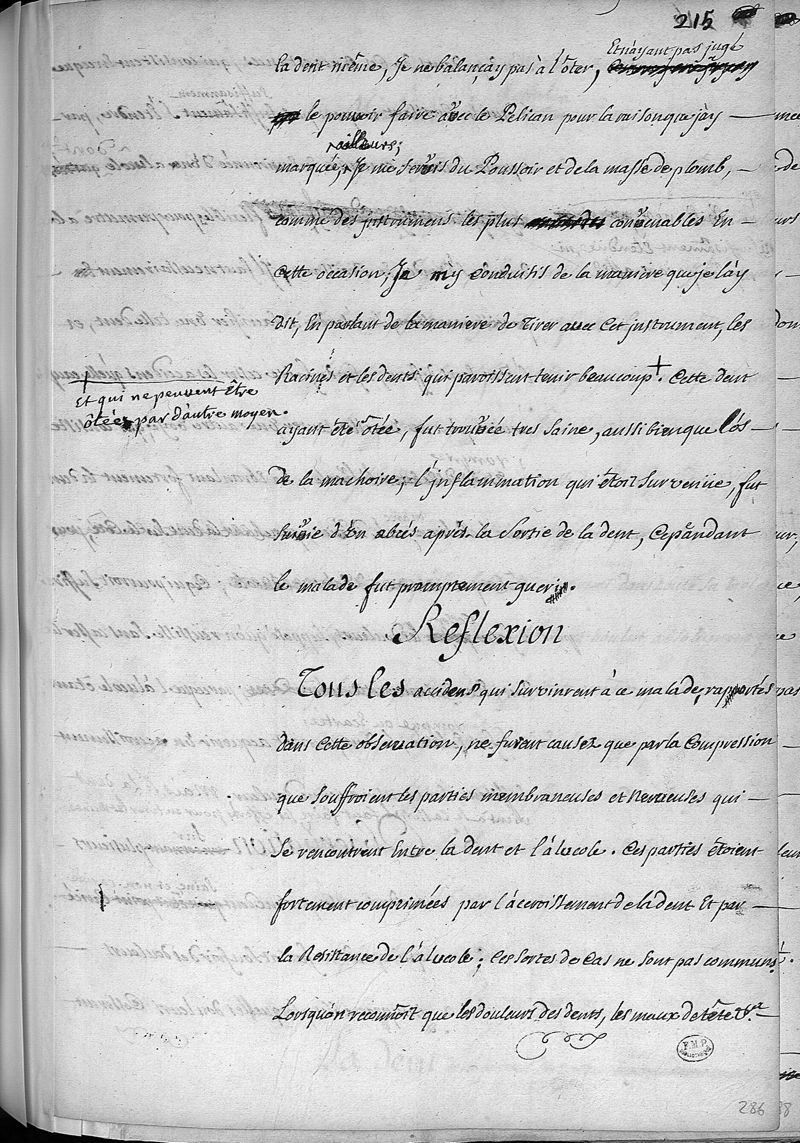 215
Et n'ayant pas jugé
la dent même, Je ne balançay pas à l'ôter,
le pouvoir faire avec le Pelican pour la raison que j'ay
ailleurs;
marquée, Je me servis du Poussoir et de la masse de plomb,
comme des jnstrumens les plus convenables En
Cette occasion; Je m'y conduisis de la maniere que je l'ay
dit, En parlant de la maniere de Tirer avec Cet jnstrument, les
Racines et les dents qui paroissent tenir beaucoup +. Cette dent
+
Et qui ne peuvent être
ôtées par d'autre moyen.
ayant été ôtée, fut trouvée tres saine, aussi bien que l'os
de la machoire; l'jnflammation qui étoit survenüe, fut
suivie d'un abcés aprés la Sortie de la dent, Cepandant
le malade fut promptement gueri.
Reflexion
Tous les accidens qui survinrent à ce malade, rapportés
dans Cette observation, ne furent causez que par la Compression
que souffroient les parties membraneuses et Nerveuses qui
se rencontrent Entre la dent et l'alveole. Ces parties étoient
fortement comprimées par l'accroissement de la dent Et par
la Resistance de l'alveole; Ces sortes de Cas ne sont pas communs.
Lorsqu'on reconnoît que les douleurs des dents, les maux de tête &.ª
F.M.P.
286